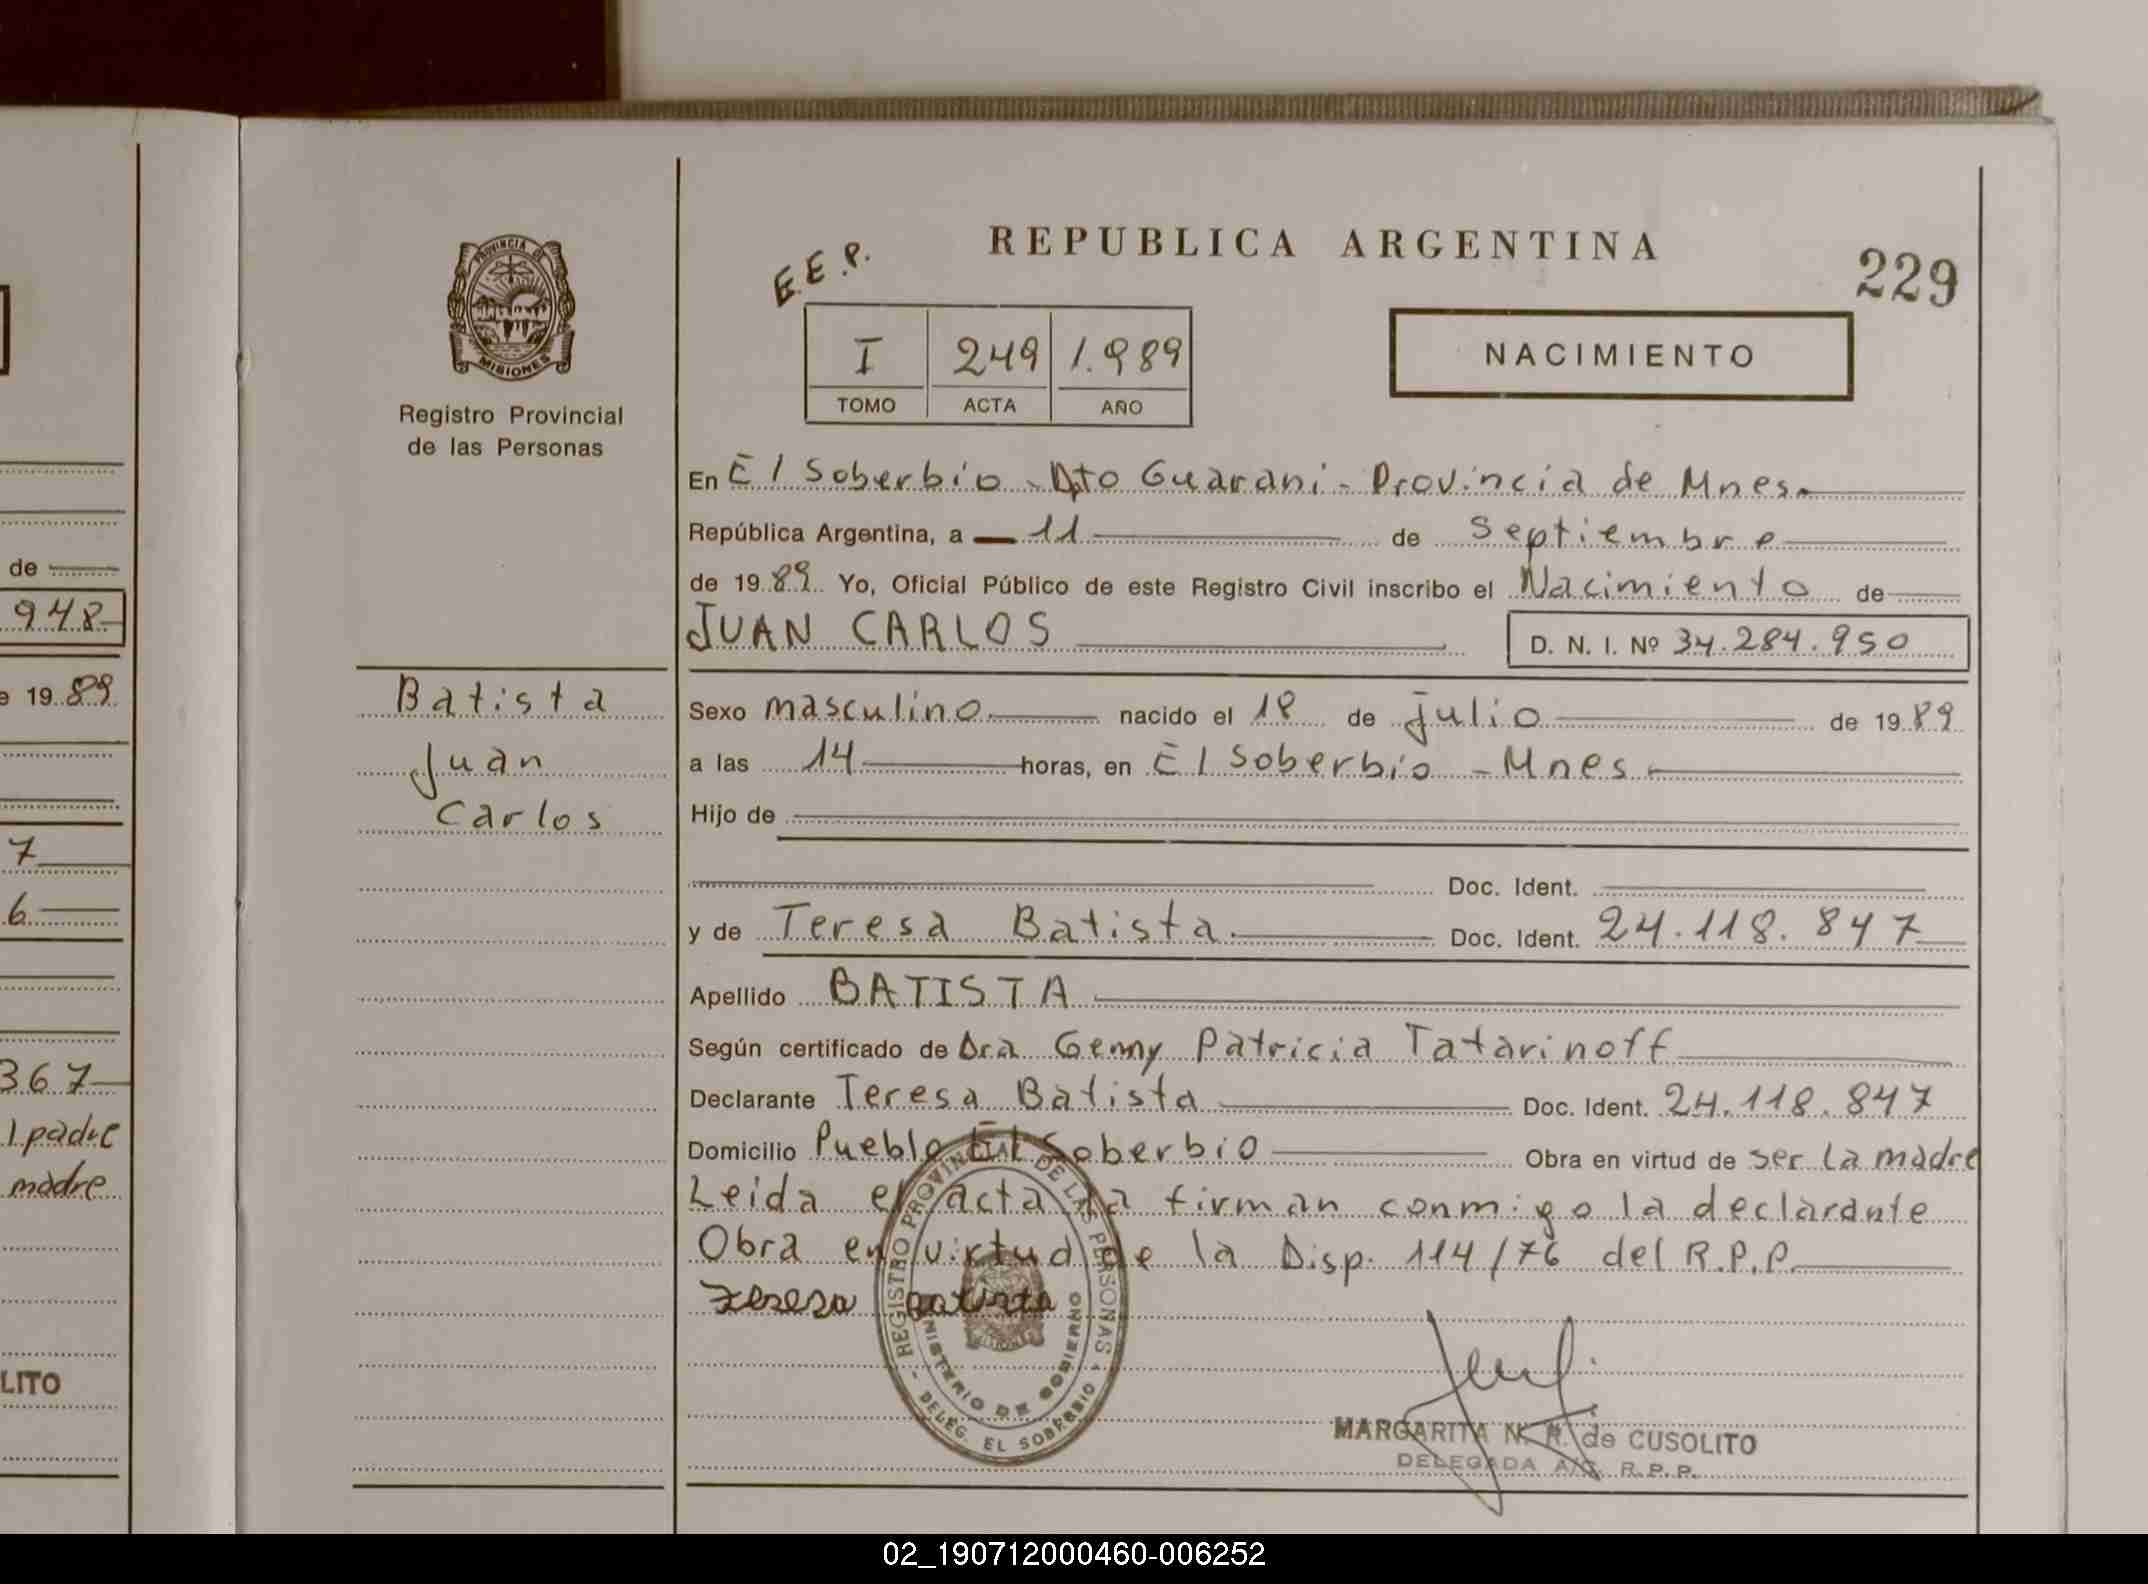 REPUBLICA ARGENTINA
229
E.E.P.
PROVINCIA DE
MISIONES
I 249 1.989
TOMO ACTA AÑO
NACIMIENTO
Registro Provincial
de las Personas
En El Soberbio - Dto Guarani - Provincia de Mnes.
República Argentina, a 11 de Septiembre
de 1989 Yo, Oficial Público de este Registro Civil inscribo el Nacimiento de
JUAN CARLOS D. N. I. Nº 34.284.950
Batista
Juan
Carlos
Sexo masculino nacido el 18 de julio de 1989
a las 14 horas, en El Soberbio - Mnes
Hijo de
Doc. Ident.
y de Teresa Batista Doc. Ident. 24.118.847
Apellido BATISTA
Según certificado de Dra Genny Patricia Tatarinoff
Declarante Teresa Batista Doc. Ident. 24.118.847
Domicilio Pueblo El Soberbio Obra en virtud de ser la madre
Leida el acta la firman conmigo la declarante
Obra en virtud de la Disp. 114/76 del R.P.P.
Teresa Batista
REGISTRO PROVINCIAL DE LAS PERSONAS
MINISTERIO DE GOBIERNO
DELEG. EL SOBERBIO
MARGARITA N. R. de CUSOLITO
DELEGADA A/C. R.P.P.
de
948
e 19 89
7
6
367
l padre
madre
LITO
02_190712000460-006252